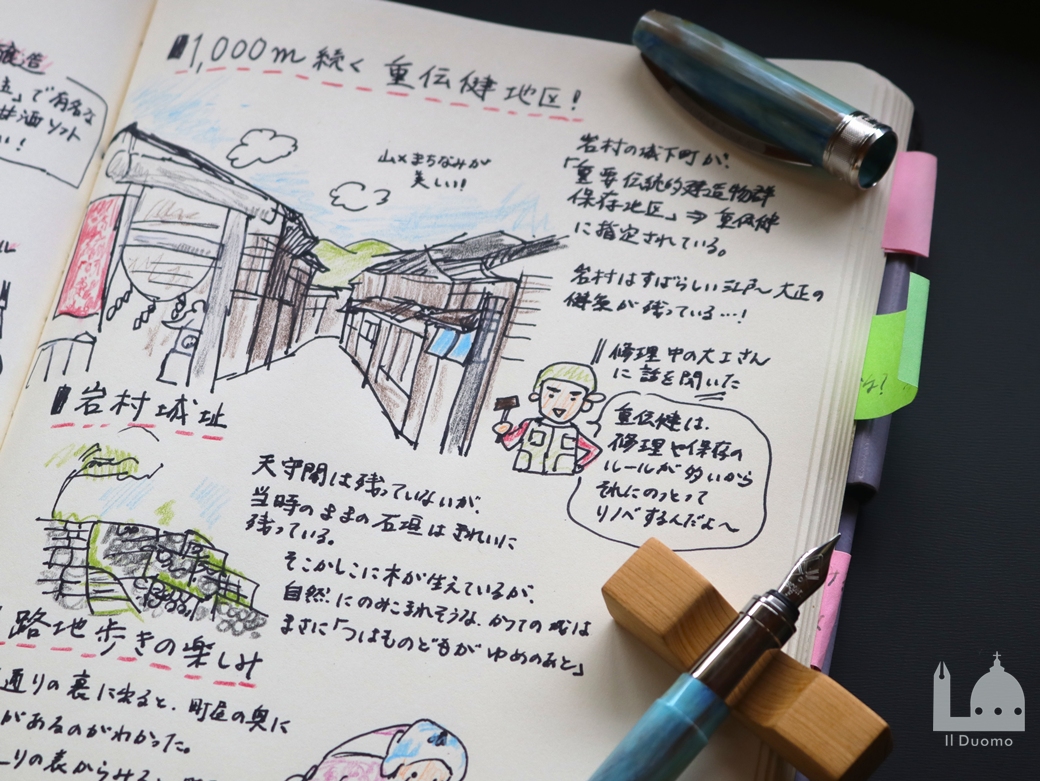 1,000m続く 重伝健地区!
山×まちなみが
美しい!
岩村の城下町が、
「重要伝統的建造物群
保存地区」⇒重伝健
に指定されている。
岩村はすばらしい江戸〜大正の
健築が残っている…!
修理中の大工さん
に話を聞いた
重伝健は、
修理や保存の
ルールが多いから
それにのっとって
リノベするんだよ〜
岩村城址
天守閣は残っていないが、
当時のままの石垣はきれいに
残っている。
そこかしこに木が生えているが、
自然にのみこまれそうな、かつての城は
まさに「つはものどもがゆめのあと」
路地歩きの楽しみ
通りの裏に出ると、町屋の奥に
があるのがわかった。
で有名な
ソフト
い!
Il Duomo